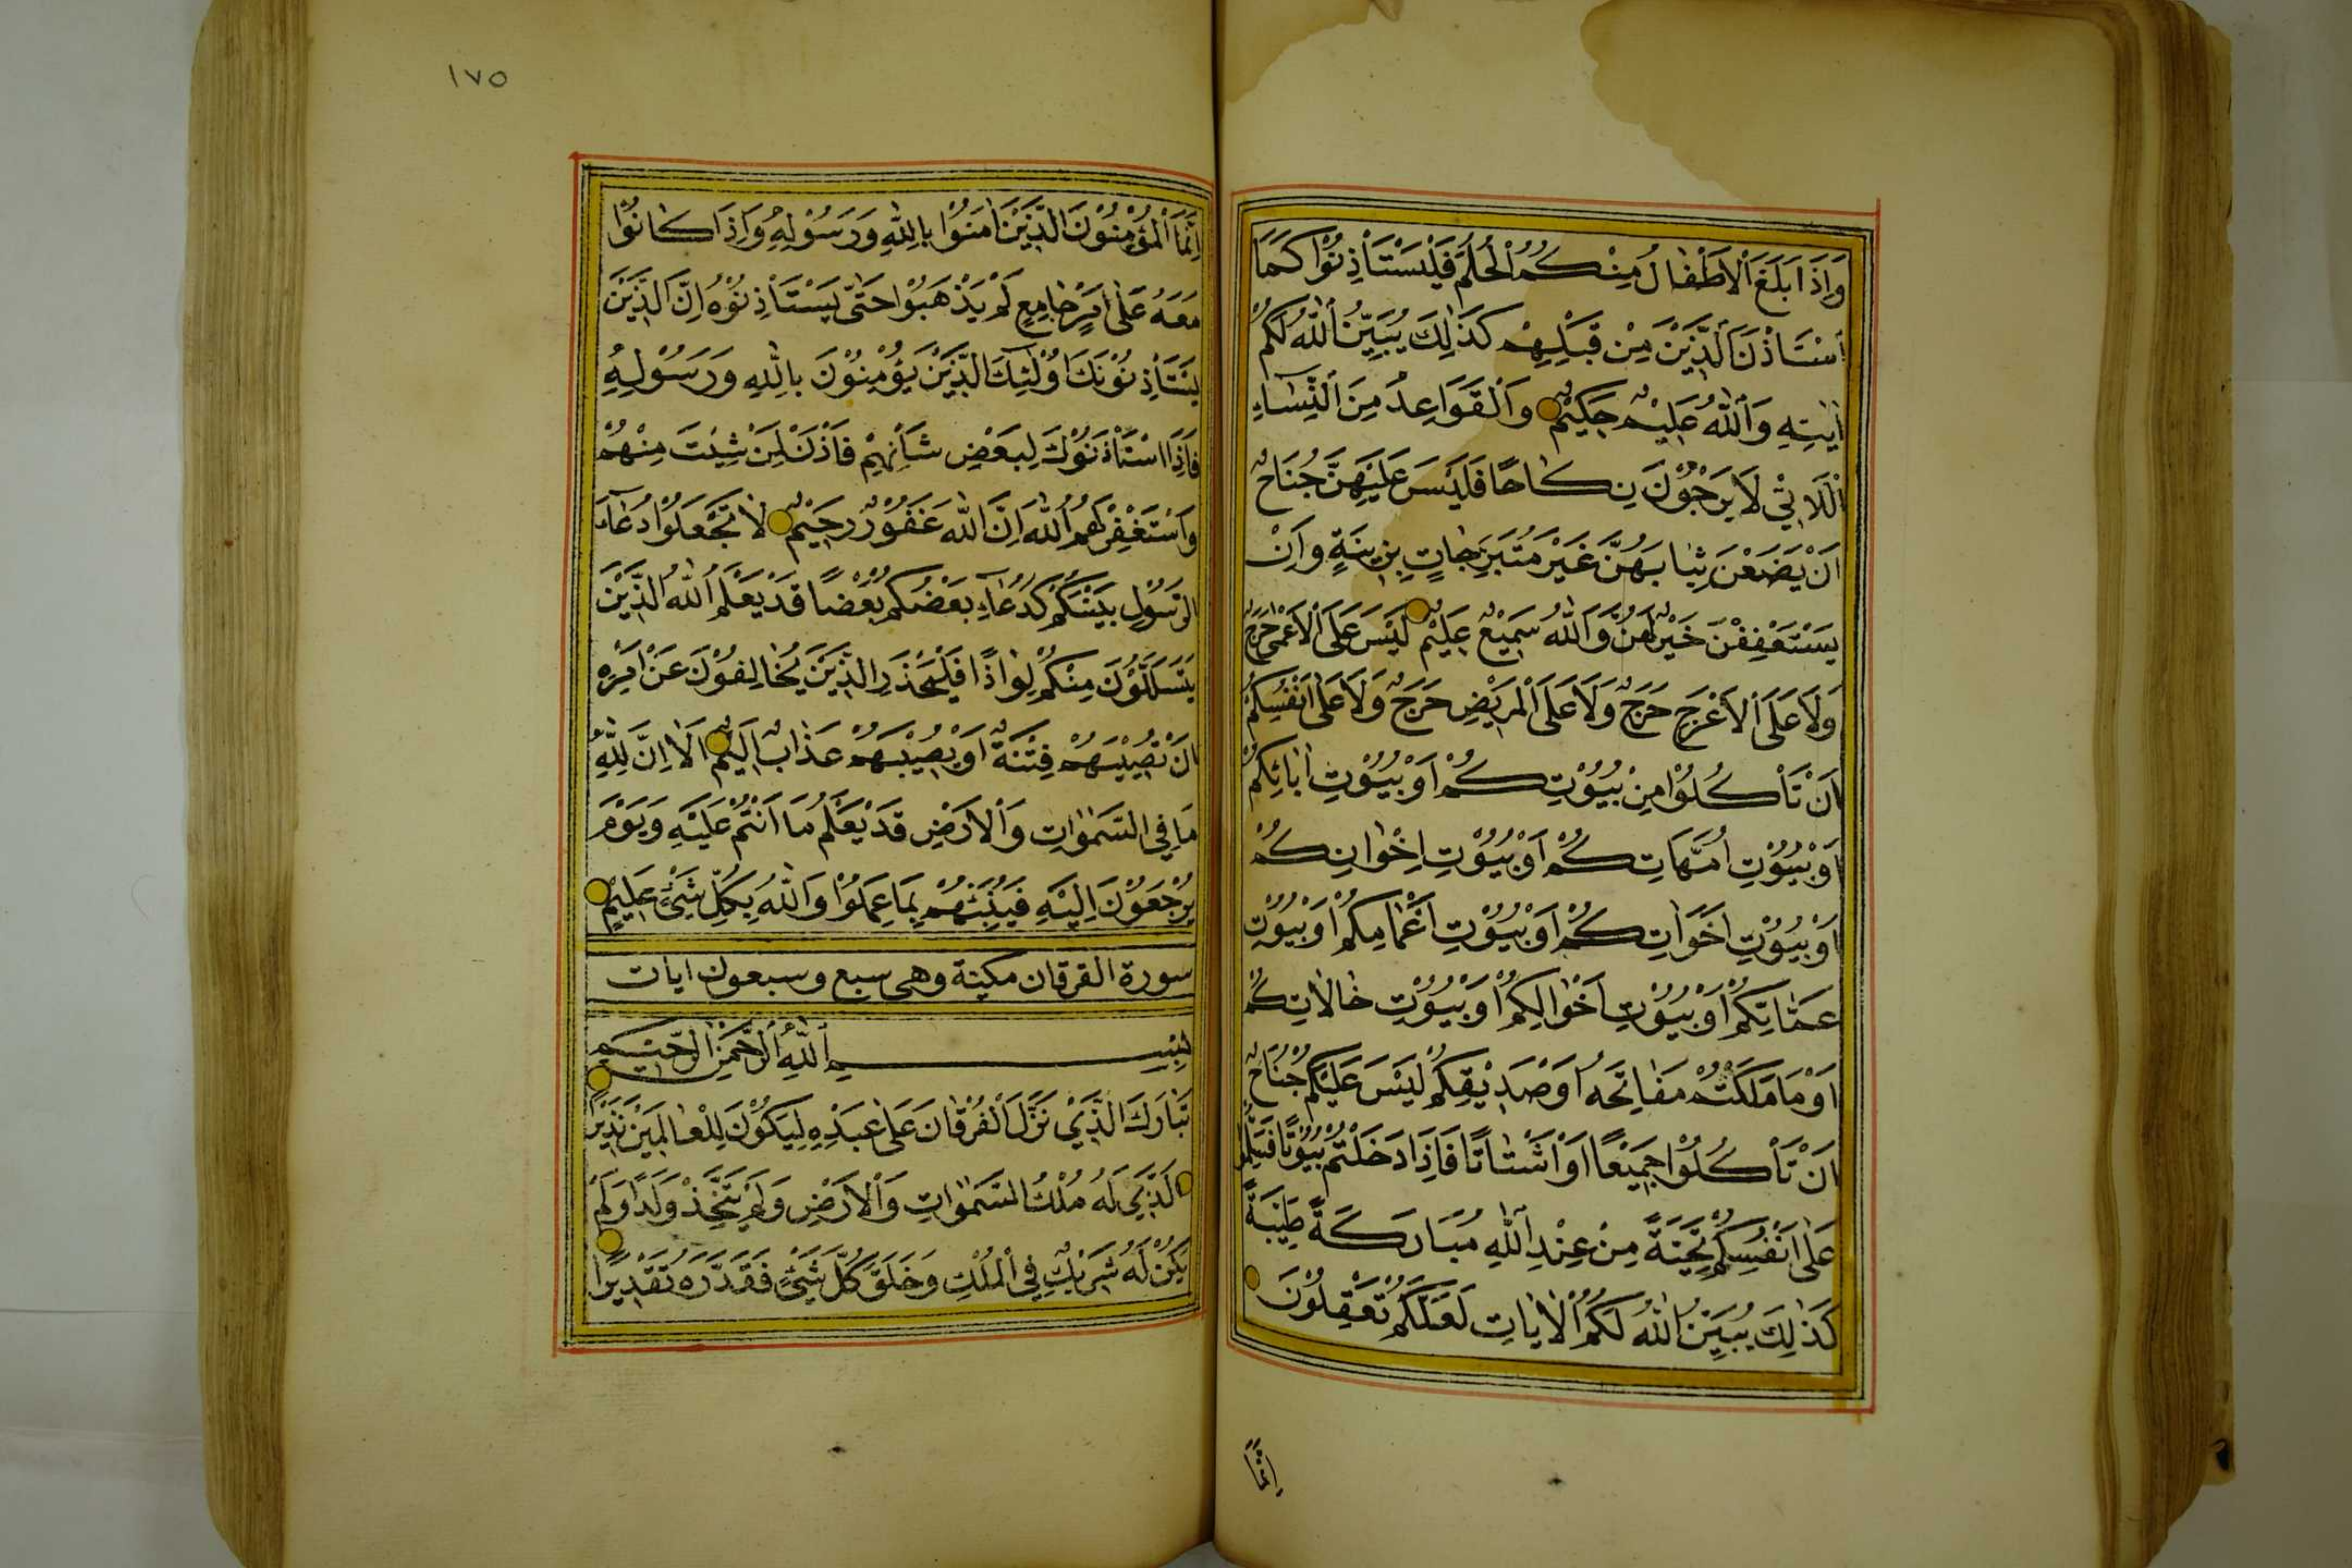 وَاِذَا بَلَغَ اْلاَطْفٰالُ مِنْكُمُ الْحُلُمَ فَلْيَسْتَأْذِنُوْا كَمَا
اْسْتَاْذَنَ الَّذِيْنَ مِنْ قَبْلِهِمْ كَذٰلِكَ يُبَيِّنُ اللّٰهُ لَكُمْ
اٰيٰتِهِ وَاللّٰهُ عَلِيْمٌ حَكِيْمٌ وَالْقَوَاعِدُ مِنَ النِّسَاءِ
الْلَاتِيْ لَا يَرْجُوْنَ نِكٰاحًا فَلَيْسَ عَلَيْهِنَّ جُنَاحٌ
اَنْ يَضَعْنَ ثِيٰابَهُنَّ غَيْرَ مُتَبَرِّجٰاتٍ بِزِيْنَةٍ وَاَنْ
يَسْتَعْفِفْنَ خَيْرٌ لَهُنَّ وَاللّٰهُ سَمِيْعٌ عَلِيْمٌ لَيْسَ عَلَى الْاَعْمٰى حَرَجٌ
وَلَا عَلَى الْاَعْرَجِ حَرَجٌ وَلَا عَلَى الْمَرِيْضِ حَرَجٌ وَلَا عَلٰى اَنْفُسِكُمْ
اَنْ تَأْكُلُوْا مِنْ بُيُوْتِكُمْ اَوْ بُيُوْتِ اٰبٰائِكُمْ
اَوْ بُيُوْتِ اُمَّهَاتِكُمْ اَوْ بُيُوْتِ اِخْوٰانِكُمْ
اَوْ بُيُوْتِ اَخَوَاتِكُمْ اَوْ بُيُوْتِ اَعْمٰامِكُمْ اَوْ بُيُوْتِ
عَمّٰاتِكُمْ اَوْ بُيُوْتِ اَخْوٰالِكُمْ اَوْ بُيُوْتِ خٰالَاتِكُمْ
اَوْ مَا مَلَكْتُمْ مَفٰاتِحَهُ اَوْ صَدِيْقِكُمْ لَيْسَ عَلَيْكُمْ جُنَاحٌ
اَنْ تَأْكُلُوْا جَمِيْعًا اَوْ اَشْتٰاتًا فَاِذَا دَخَلْتُمْ بُيُوْتًا فَسَلِّمُوْا
عَلٰى اَنْفُسِكُمْ تَحِيَّةً مِنْ عِنْدِ اللّٰهِ مُبَارَكَةً طَيِّبَةً
كَذٰلِكَ يُبَيِّنُ اللّٰهُ لَكُمُ الْاٰيَاتِ لَعَلَّكُمْ تَعْقِلُوْنَ
اِنَّمَا
١٧٥
اِنَّمَا الْمُؤْمِنُوْنَ الَّذِيْنَ اٰمَنُوْا بِاللّٰهِ وَرَسُوْلِهِ وَاِذَا كٰانُوْا
مَعَهُ عَلٰى اَمْرٍ جٰامِعٍ لَمْ يَذْهَبُوْا حَتّٰى يَسْتَأْذِنُوْهُ اِنَّ الَّذِيْنَ
يَسْتَأْذِنُوْنَكَ اُوْلٰئِكَ الَّذِيْنَ يُؤْمِنُوْنَ بِاللّٰهِ وَرَسُوْلِهِ
فَاِذَا اسْتَأْذَنُوْكَ لِبَعْضِ شَأْنِهِمْ فَأْذَنْ لِمَنْ شِئْتَ مِنْهُمْ
وَاسْتَغْفِرْ لَهُمُ اللّٰهَ اِنَّ اللّٰهَ غَفُوْرٌ رَحِيْمٌ لَا تَجْعَلُوْا دُعَاءَ
الرَّسُوْلِ بَيْنَكُمْ كَدُعَاءِ بَعْضِكُمْ بَعْضًا قَدْ يَعْلَمُ اللّٰهُ الَّذِيْنَ
يَتَسَلَّلُوْنَ مِنْكُمْ لِوٰاذًا فَلْيَحْذَرِ الَّذِيْنَ يُخٰالِفُوْنَ عَنْ اَمْرِهِ
اَنْ تُصِيْبَهُمْ فِتْنَةٌ اَوْ يُصِيْبَهُمْ عَذٰابٌ اَلِيْمٌ اَلَا اِنَّ لِلّٰهِ
مَا فِي السَّمٰوٰاتِ وَالْاَرْضِ قَدْ يَعْلَمُ مَا اَنْتُمْ عَلَيْهِ وَيَوْمَ
يُرْجَعُوْنَ اِلَيْهِ فَيُنَبِّئُهُمْ بِمَا عَمِلُوْا وَاللّٰهُ بِكُلِّ شَيْءٍ عَلِيْمٌ
سورة الفرقان مكية وهى سبع وسبعون ايات
بِسْمِ اللّٰهِ الرَّحْمٰنِ الرَّحِيْمِ
تَبٰارَكَ الَّذِيْ نَزَّلَ الْفُرْقٰانَ عَلٰى عَبْدِهِ لِيَكُوْنَ لِلْعٰالَمِيْنَ نَذِيْرًا
اَلَّذِيْ لَهُ مُلْكُ السَّمٰوٰاتِ وَالْاَرْضِ وَلَمْ يَتَّخِذْ وَلَدًا وَلَمْ
يَكُنْ لَهُ شَرِيْكٌ فِي الْمُلْكِ وَخَلَقَ كُلَّ شَيْءٍ فَقَدَّرَهُ تَقْدِيْرًا